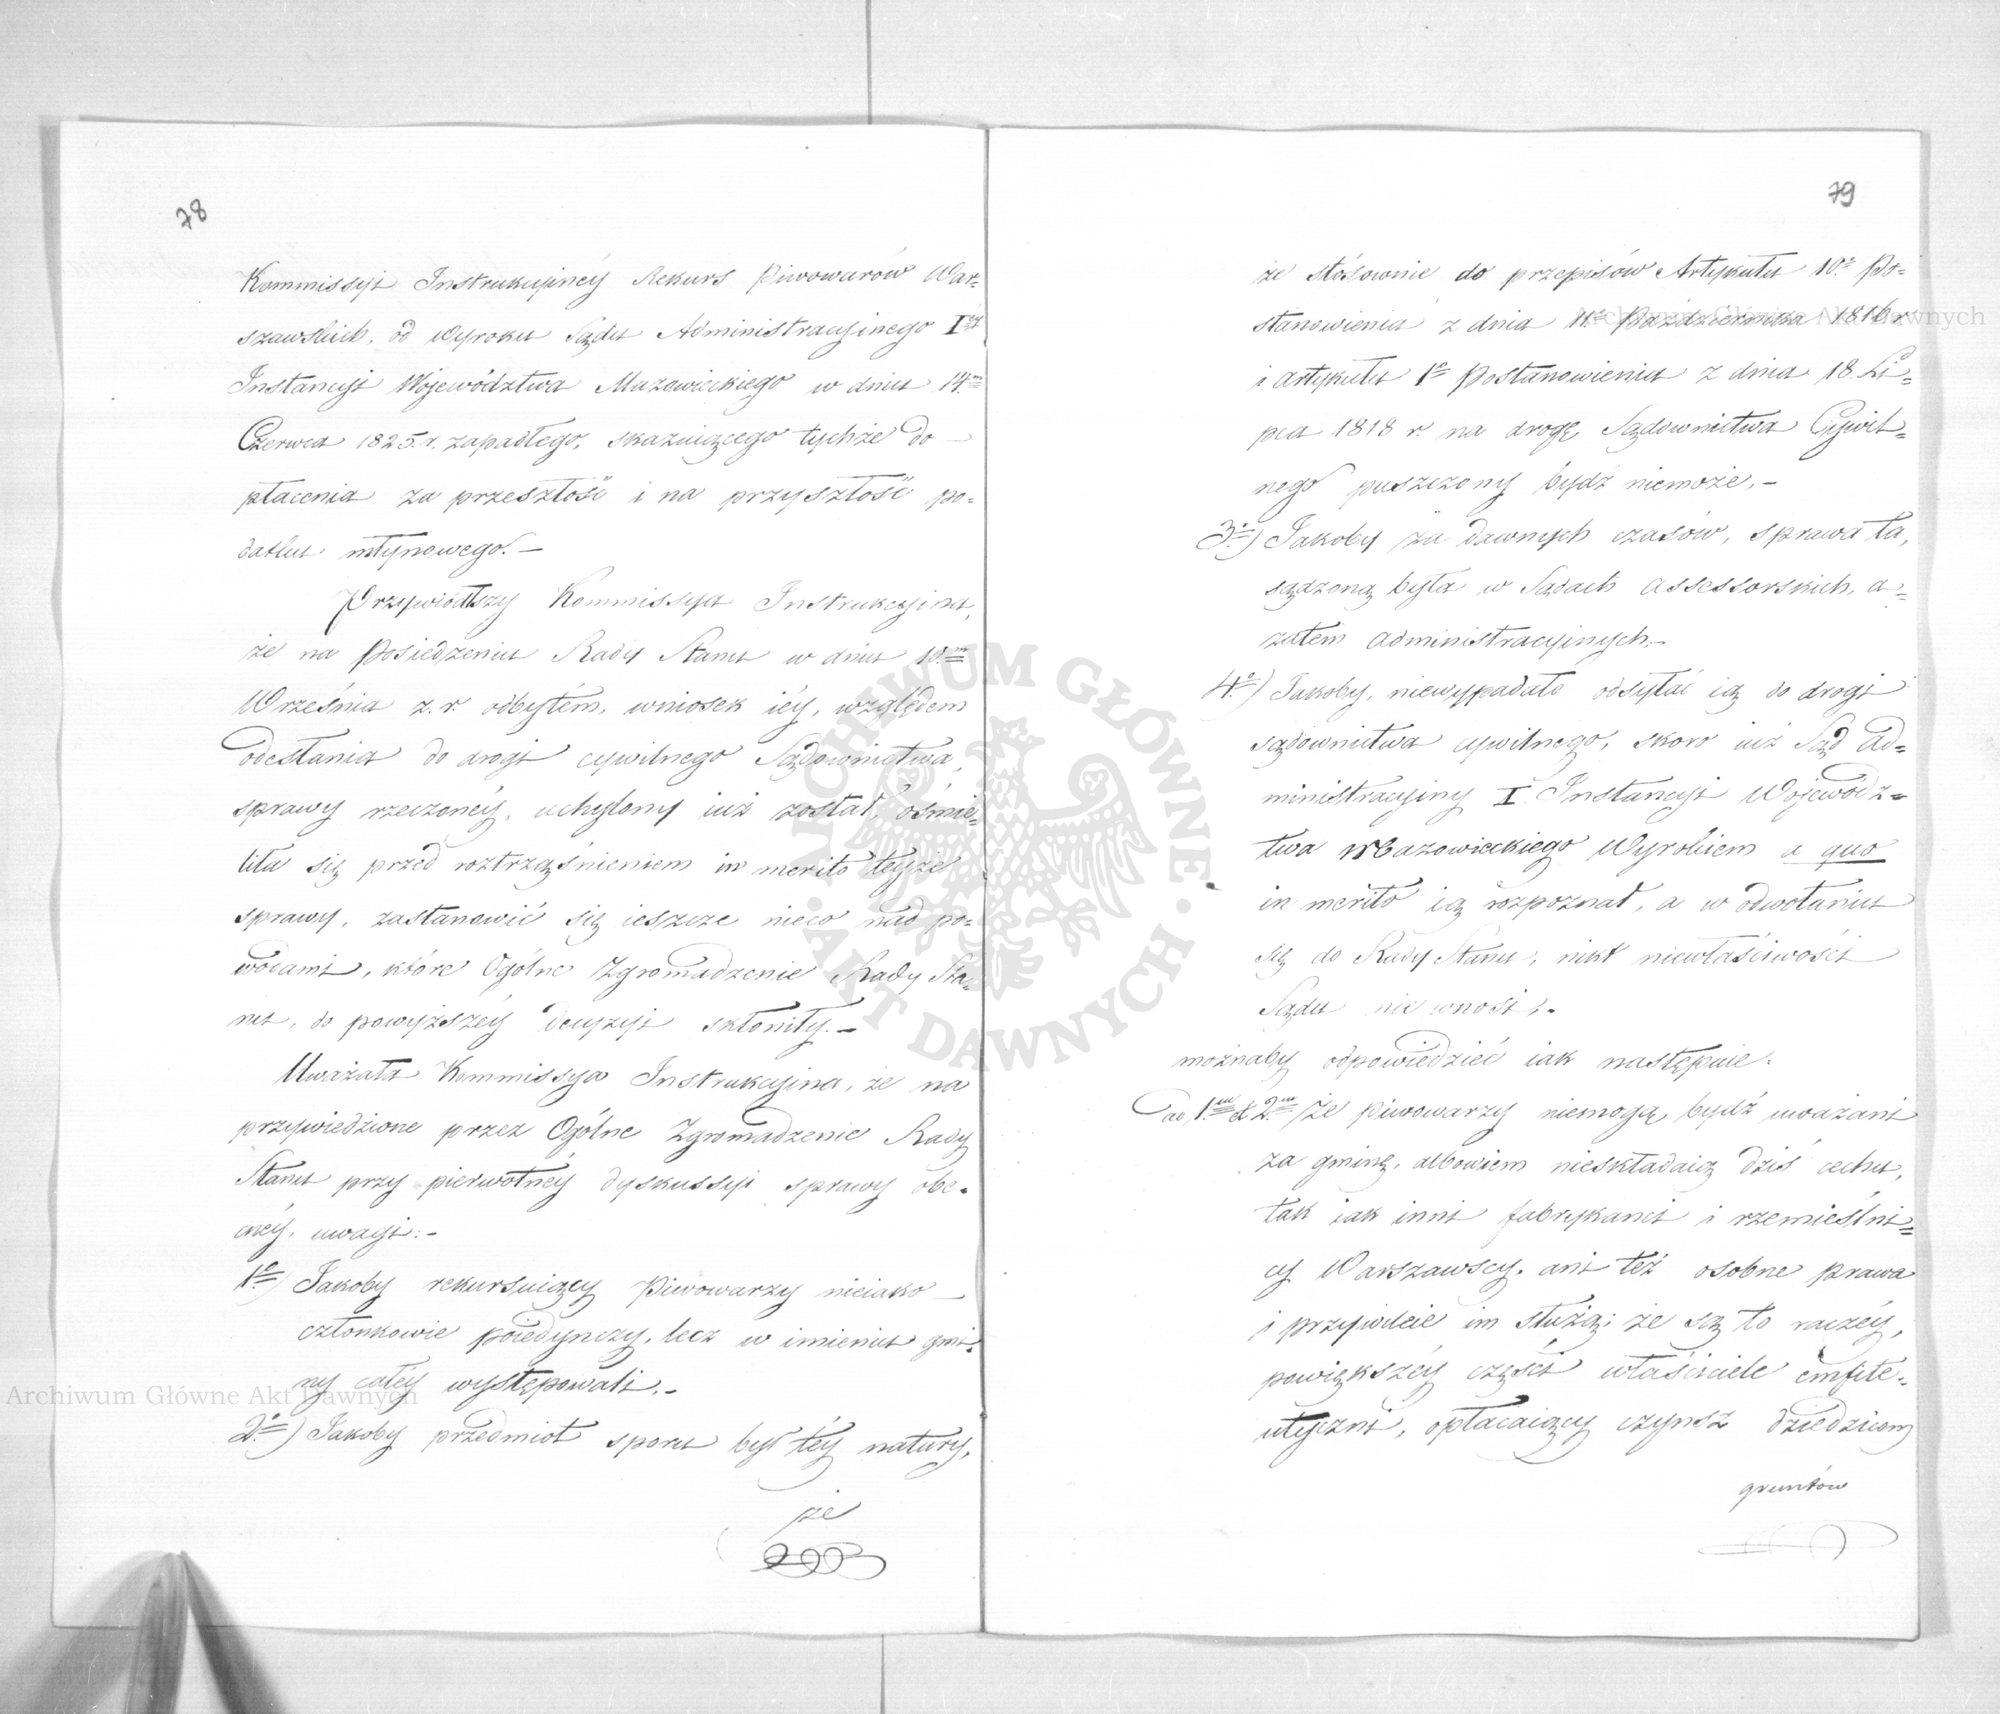 78
Kommissyi Instrukcyinéy Rekurs Piwowarów War-
szawskich, od Wyroku Sądu Administracyjnego I<sup>éy</sup>
Instancyi Województwa Mazowieckiego w dniu 14.<sup>m</sup>
Czerwca 1825. r. zapadłego, skazuiącego tychże do
płacenia za przeszłość i na przyszłość po-
datku młynowego. –
Przywiódłszy Kommissya Instrukcyina,
że na Posiedzeniu Rady Stanu w dniu 10.<sup>m</sup>
Września z. r. odbytém, wniosek iéy, względem
odesłania do drogi cywilnego Sądownictwa,
sprawy rzeczonéy, uchylony iuż został, ośmie-
liła się przed roztrząśnieniem in merito teyże
sprawy, zastanowić się ieszcze nieco nad po-
wodami, które Ogólne Zgromadzenie Rady Sta-
nu, do powyższéy decyzyi skłoniły. –
Uważała Kommissya Instrukcyina, że na
przywiedzione przez Ogólne Zgromadzenie Rady
Stanu przy pierwotnéy dyskussyi sprawy obe-
cnéy, uwagi: –
1.<sup>e</sup>) Jakoby rekursuiący Piwowarzy nieiako
członkowie poiedynczy, lecz w imieniu gmi-
ny całéy występowali. –
2.<sup>e</sup>) Jakoby przedmiot sporu był téy natury,
że
79
że stósownie do przepisów Artykułu 10.<sup>o</sup> Po-
stanowienia z dnia 11.<sup>o</sup> Października 1816 r
i artykułu 1<sup>o</sup> Postanowienia z dnia 18. Li-
pca 1818 r. na drogę Sądownictwa Cywil-
nego puszczony bydź niemoże. –
3.<sup>e</sup>) Jakoby za dawnych czasów, sprawa ta,
sądzoną była w Sądach Assessorskich, a-
zatem Administracyinych. –
4.<sup>e</sup>) Jakoby, niewypadało odsyłać ią do drogi
sądownictwa cywilnego, skoro iuż Sąd Ad-
ministracyiny I. Instancyi Wojewódz-
twa Mazowieckiego Wyrokiem a quo
in merito ią rozpoznał, a w odwołaniu
się do Rady Stanu, nikt niewłaściwości
Sądu nie wnosi, –
możnaby odpowiedzieć iak następuie.
ad 1.<sup>m</sup> et 2.<sup>m</sup> Że Piwowarzy niemogą bydź uważani
za gminę, albowiem nieskładaią dziś cechu,
tak iak inni fabrykanci i rzemieślni-
cy Warszawscy, ani też osobne prawa
i przywileie im służą; że są to raczéy,
powiększéy części właściciele emfite-
utyczni, opłacaiący czynsz dziedzicom
gruntów
Archiwum Główne Akt Dawnych
Archiwum Główne Akt Dawnych
ARCHIWUM GŁÓWNE · AKT DAWNYCH ·